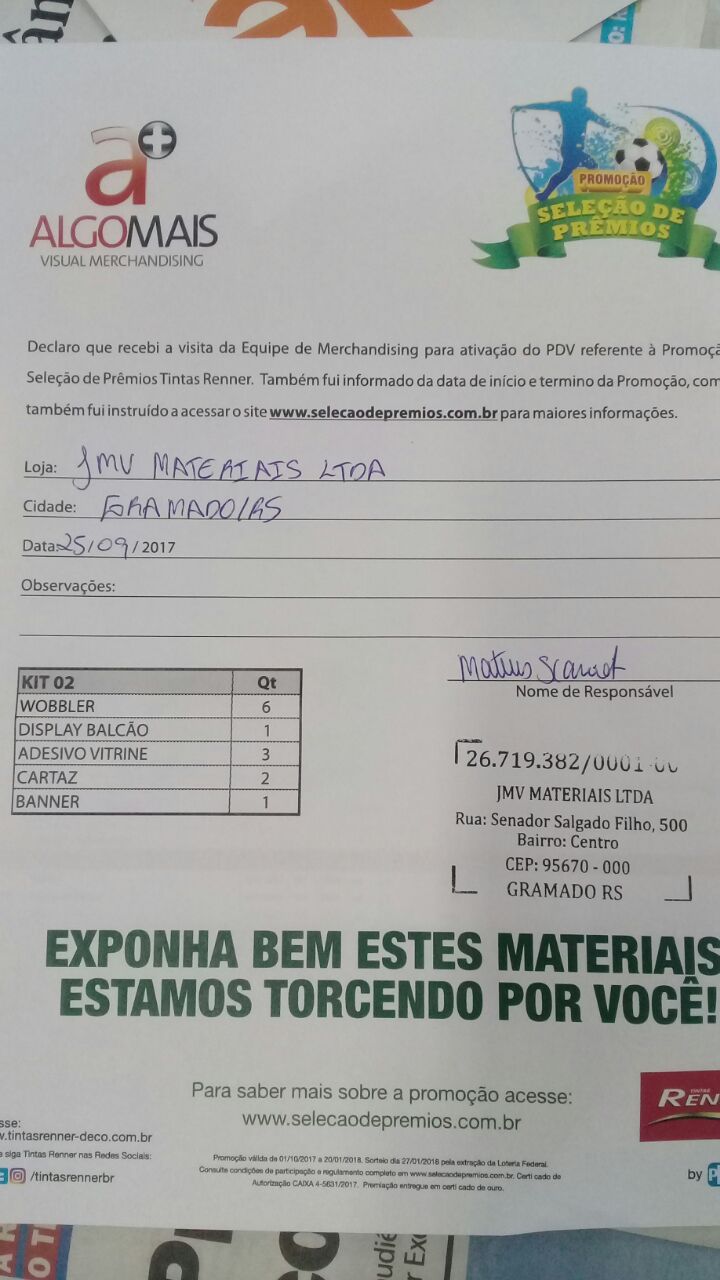 a+
ALGOMAIS
VISUAL MERCHANDISING
PROMOÇÃO
SELEÇÃO DE
PRÊMIOS
Declaro que recebi a visita da Equipe de Merchandising para ativação do PDV referente à Promoçã
Seleção de Prêmios Tintas Renner. Também fui informado da data de início e termino da Promoção, com
também fui instruído a acessar o site www.selecaodepremios.com.br para maiores informações.
Loja: JMV MATERIAIS LTDA
Cidade: GRAMADO/RS
Data: 25/09/2017
Observações:
Nome de Responsável
KIT 02 Qt
WOBBLER 6
DISPLAY BALCÃO 1
ADESIVO VITRINE 3
CARTAZ 2
BANNER 1
26.719.382/0001-
JMV MATERIAIS LTDA
Rua: Senador Salgado Filho, 500
Bairro: Centro
CEP: 95670 - 000
GRAMADO RS
EXPONHA BEM ESTES MATERIAIS
ESTAMOS TORCENDO POR VOCÊ!
Para saber mais sobre a promoção acesse:
www.selecaodepremios.com.br
TINTAS
REN
sse:
w.tintasrenner-deco.com.br
e siga Tintas Renner nas Redes Sociais:
/tintasrennerbr
Promoção válida de 01/10/2017 a 20/01/2018. Sorteio dia 27/01/2018 pela extração da Loteria Federal.
Consulte condições de participação e regulamento completo em www.selecaodepremios.com.br. Certi cado de
Autorização CAIXA 4-5631/2017. Premiação entregue em certi cado de ouro.
by